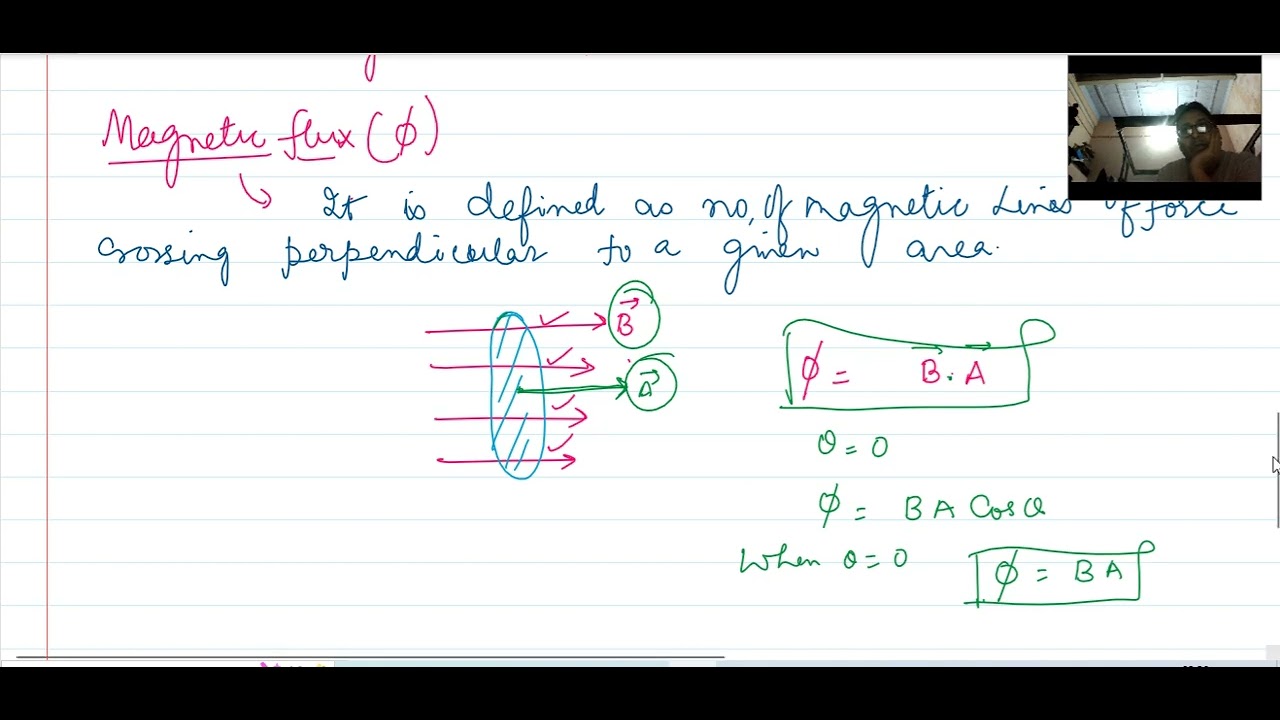 Magnetic flux (ϕ)
It is defined as no. of magnetic Lines of force
crossing perpendicular to a given area.
B⃗
A⃗
ϕ = B⃗ . A⃗
θ = 0
ϕ = B A Cosθ
When θ = 0 ϕ = B A